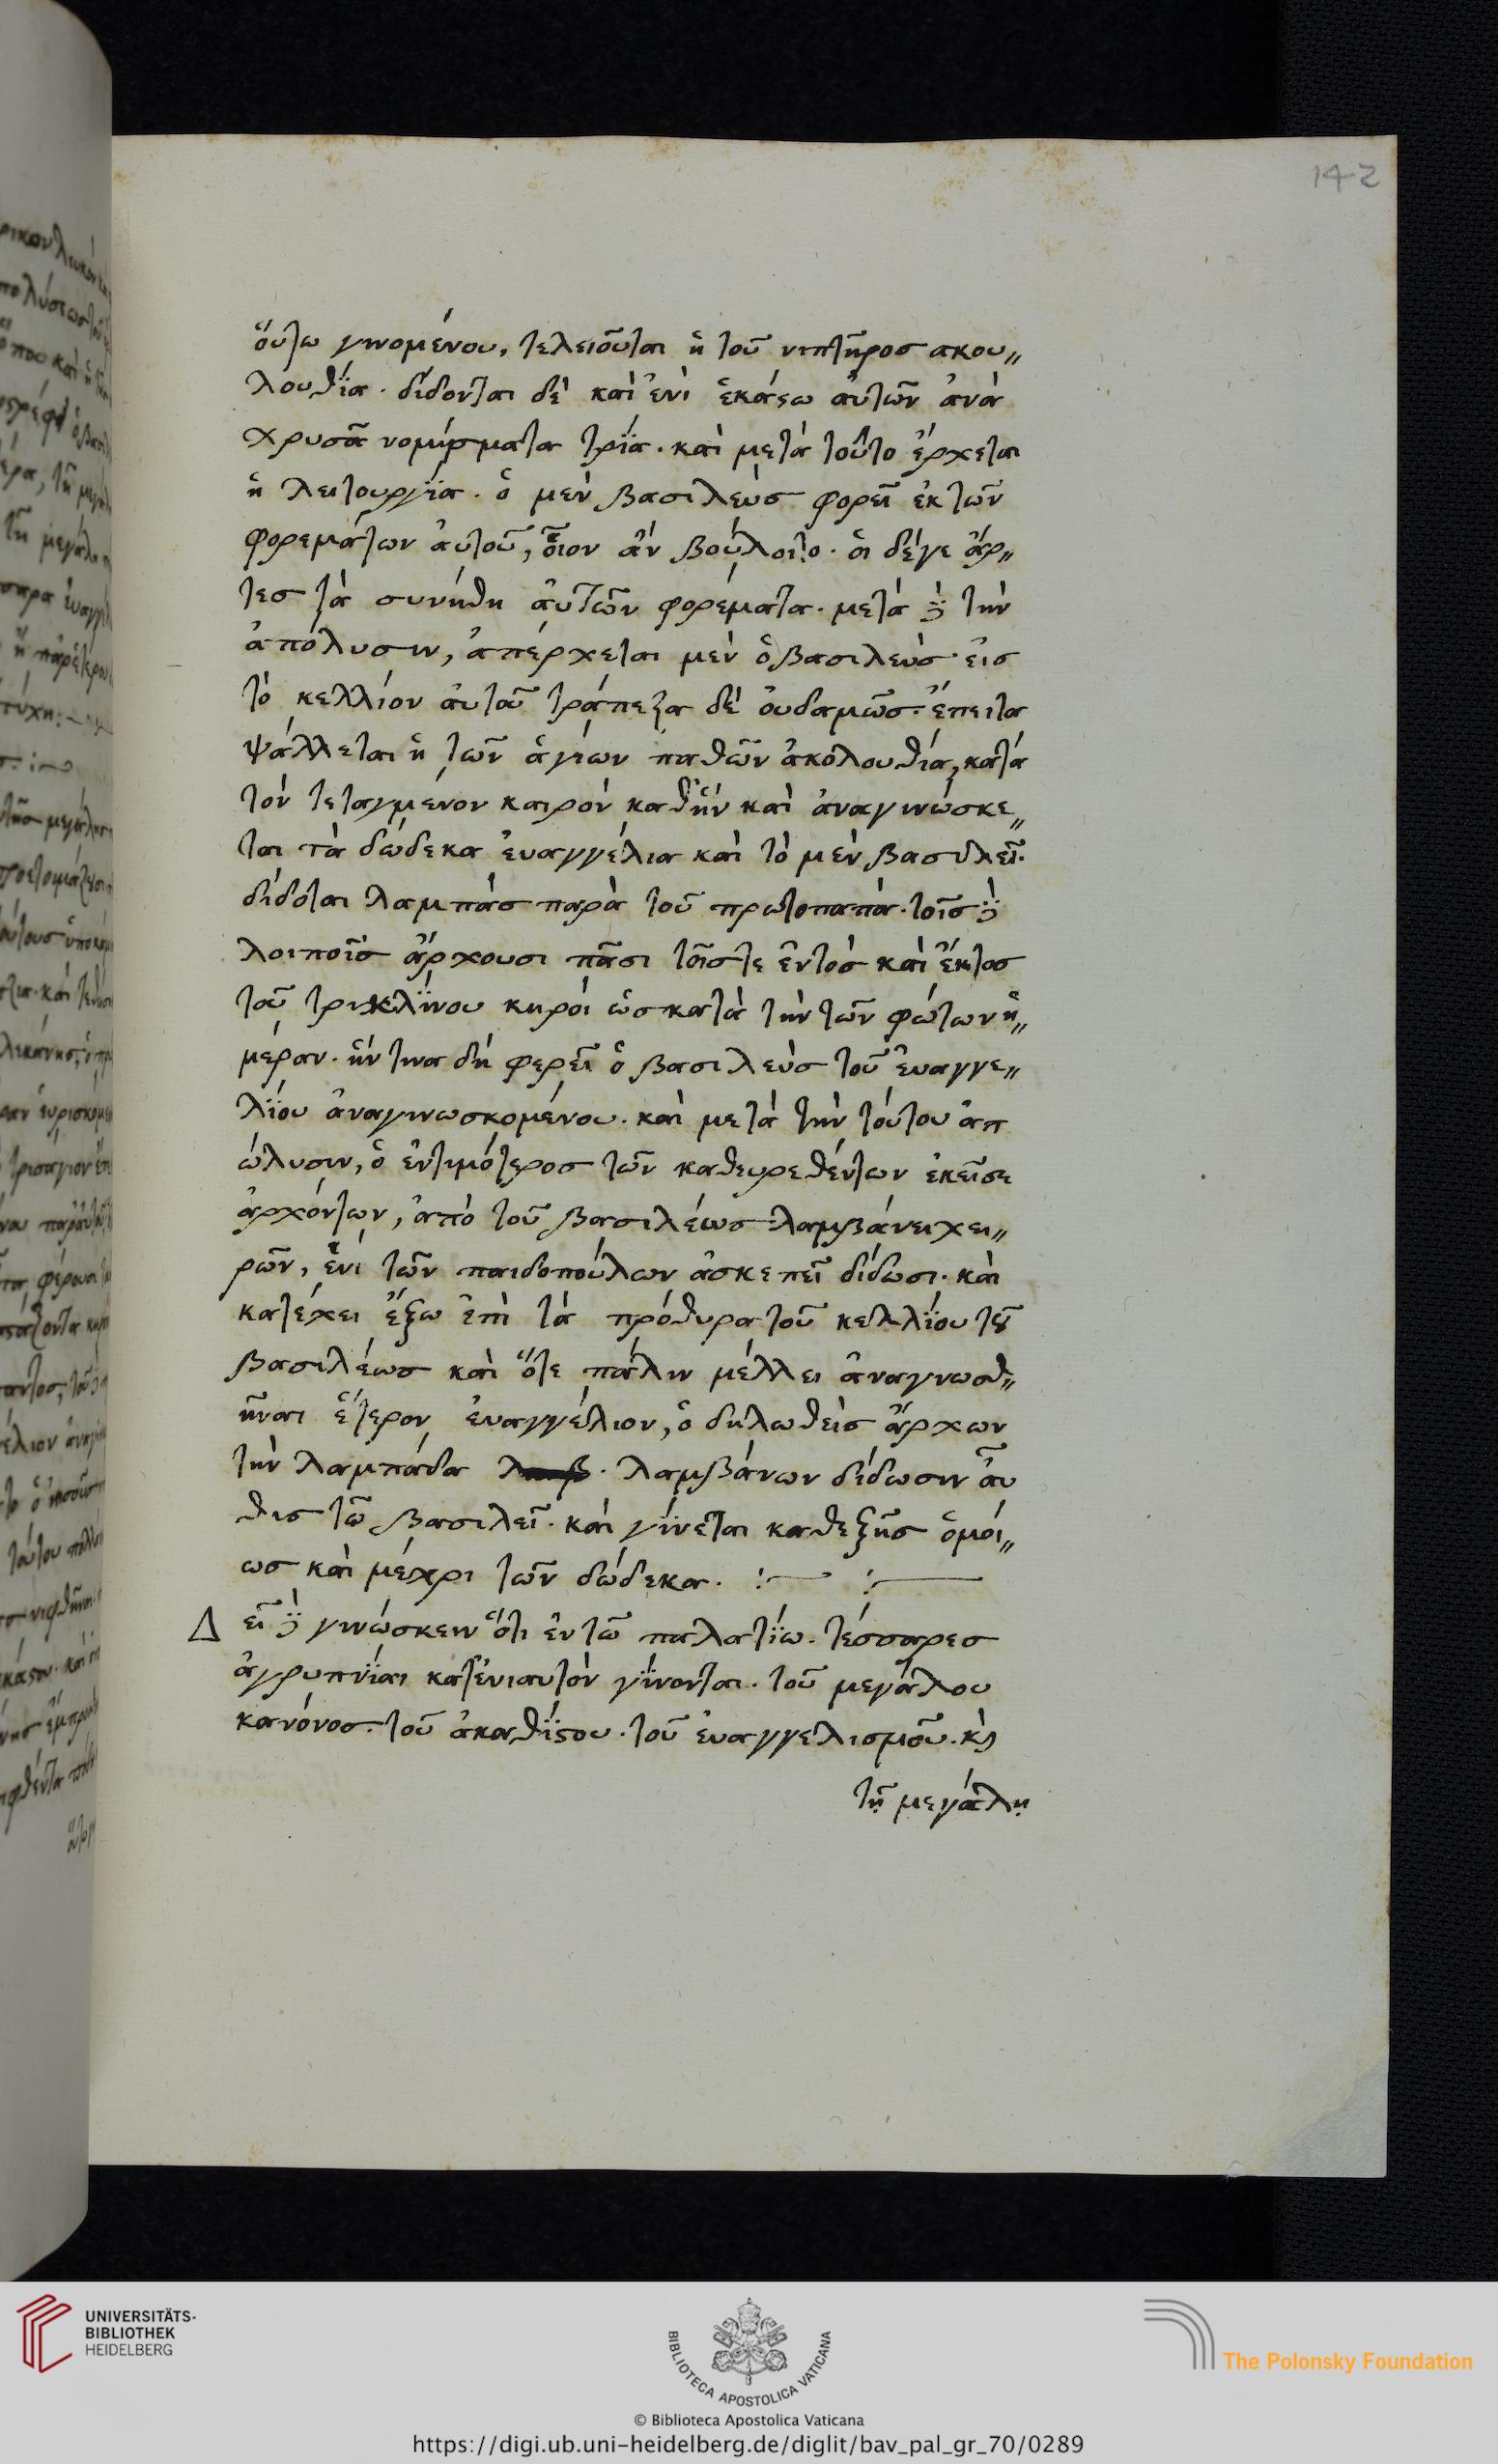 142
ὅυτω γινομένου, τελειοῦται ἡ τοῦ νιπτῆρος ακου〃
λουθΐα. δίδονται δὲ καὶ ἑνὶ ἑκάστω ἀυτῶν ἀνὰ
χρυσᾶ νομίσματα τρΐα. καὶ μετὰ τοῦτο ἔρχεται
ἡ λειτουργΐα. ὁ μὲν βασιλεὺς φορεῖ ἐκ τῶν
φορεμάτων ἀυτοῦ, οἷον ἂν βούλοιτο. ὁι δέγε ἄρ〃
τες τὰ συνήθη ἀυτῶν φορέματα. μετὰ δὲ τὴν
ἀπόλυσιν, ἀπέρχεται μὲν ὁ βασιλεὺς εἰς
τὸ κελλίον ἀυτοῦ τράπεζα δὲ ὀυδαμῶς. ἔπειτα
ψάλλεται ἡ τῶν ἁγίων παθῶν ἀκολουθία, κατὰ
τὸν τεταγμενον καιρὸν καθ ἣν καὶ ἀναγινώσκε〃
ται τὰ δώδεκα ἐυαγγέλια καὶ τὸ μὲν βασιλεῖ.
δίδοται λαμπὰς παρὰ τοῦ πρωτοπαπὰ. τοῖς δὲ
λοιποῖς ἄρχουσι πᾶσι τοῖς τε ἐντὸς καὶ ἔκτος
τοῦ τρικλΐνου κηροὶ ὡς κατὰ τὴν τῶν φώτων ἡ〃
μέραν. ἥν τινα δὴ φερεῖ ὁ βασιλεὺς τοῦ ἐυαγγε〃
λΐου ἀναγινωσκομένου. καὶ μετὰ τὴν τούτου ἀπ
ώλυσιν, ὁ ἐντιμότερος τῶν καθευρεθέντων ἐκεῖσε
ἀρχόντων, ἀπὸ τοῦ βασιλέως λαμβάνει χει〃
ρῶν, ἑνὶ τῶν παιδοπούλων ἀσκεπεῖ δίδωσι. καὶ
κατέχει ἔξω ἐπὶ τὰ πρόθυρα τοῦ κελλΐου τοῦ
βασιλέως καὶ ὅτε πάλιν μέλλει ἀναγνωσθ〃
ῆναι ἕτερον ἐυαγγέλιον, ὁ δηλωθεὶς ἄρχων
τὴν λαμπάδα λαμβ. λαμβάνων δίδωσιν ἆυ
θις τῶ βασιλεῖ. καὶ γίνεται καθεξῆς ὁμοί〃
ως καὶ μέχρι τῶν δώδεκα. :— :—
Δ εῖ δὲ γινώσκειν ὅτι ἐν τῶ παλατΐω. τέσσαρες
ἀγρυπνΐαι κατ ἐνιαυτὸν γΐνονται. τοῦ μεγάλου
κανόνος. τοῦ ἀκαθΐστου. τοῦ ἐυαγγελισμοῦ. κὶ
τῇ μεγάλῃ
UNIVERSITÄTS-
BIBLIOTHEK
HEIDELBERG
BIBLIOTECA APOSTOLICA VATICANA
The Polonsky Foundation
© Biblioteca Apostolica Vaticana
https://digi.ub.uni-heidelberg.de/diglit/bav_pal_gr_70/0289